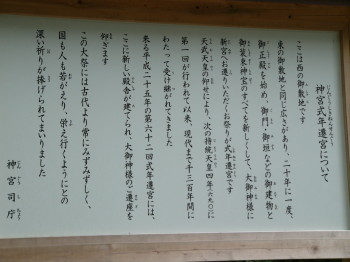 神宮式年遷宮について
ここは西の御敷地です
東の御敷地と同じ広さがあり、二十年に一度、
御正殿を始め、御門、御垣などの御建物と
御装束神宝のすべてを新しくして、大御神様に
新宮へお遷りいただくお祭りが式年遷宮です
天武天皇の仰せにより、次の持統天皇四年(六九〇)に
第一回が行われて以来、現代まで千三百年間に
わたって受け継がれてきました
来る平成二十五年の第六十二回式年遷宮には、
ここに新しい殿舎が建てられ、大御神様のご遷座を
仰ぎます
この大祭には古代より常にみずみずしく、
国も人も若がえり、栄え行くようにとの
深い祈りが捧げられてまいりました
神宮司庁